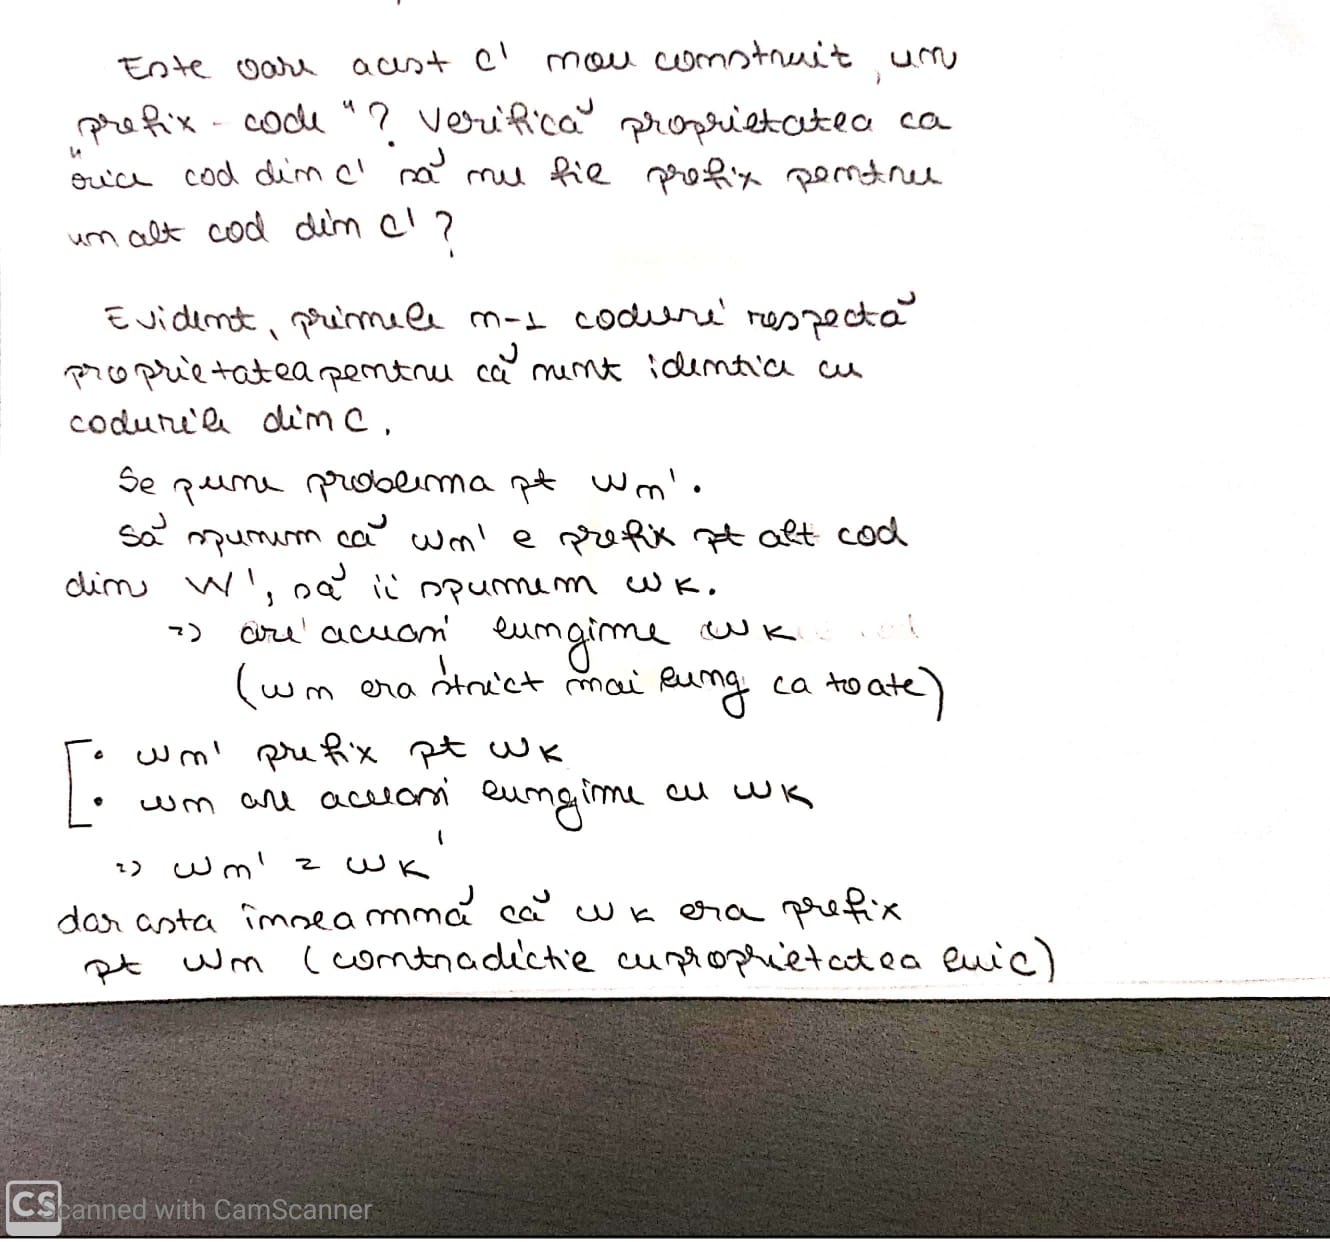 Este oare acest C' nou construit, un
„prefix-code"? Verifică proprietatea ca
orice cod din C' să nu fie prefix pentru
un alt cod din C'?
Evident, primele n-1 coduri respectă
proprietatea pentru că sunt identice cu
codurile din C.
Se pune problema pt wn'.
Să spunem că wn' e prefix pt alt cod
din W', să îi spunem wk.
=> are aceeași lungime wk
(wn era strict mai lung ca toate)
• wn' prefix pt wk
• wn are aceeași lungime cu wk
=> wn' = wk'
dar asta înseamnă că wk era prefix
pt wn (contradicție cu proprietatea lui C)
CS Scanned with CamScanner